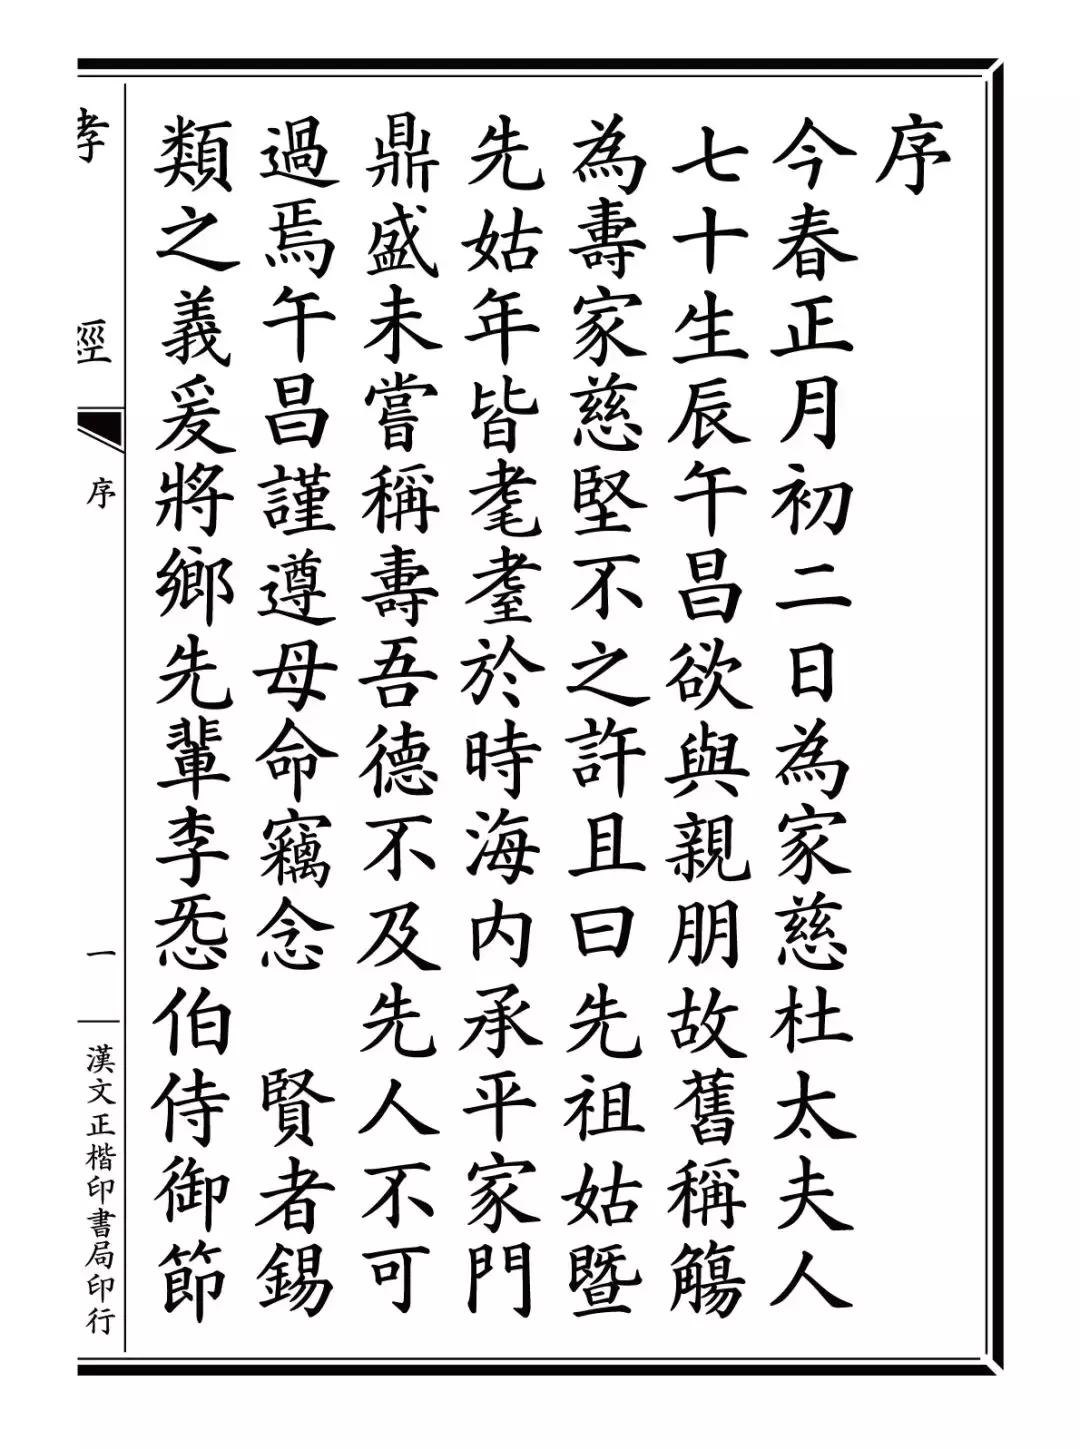 序
今春正月初二日為家慈杜太夫人
七十生辰午昌欲與親朋故舊稱觴
為壽家慈堅不之許且曰先祖姑暨
先姑年皆耄耋於時海内承平家門
鼎盛未嘗稱壽吾德不及先人不可
過焉午昌謹遵母命竊念　賢者錫
類之義爰將鄉先輩李㤅伯侍御節
孝經
序
一
漢文正楷印書局印行